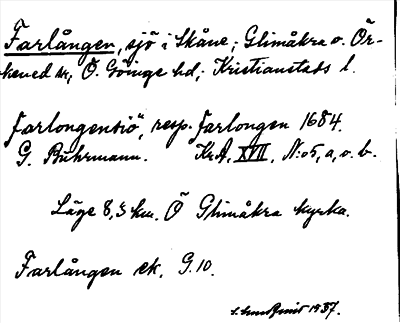 Farlången, sjö i Skåne; Glimåkra o. Ör-
kened sn, Ö. Göinge hd; Kristianstads l.
Farlongensiö", resp. Farlongen 1684.
G. Buhrmann. KrA, XVII, N:o 5, a, o. b.
Läge 8,3 km. Ö Glimåkra kyrka.
Farlången ek. G. 10.
1937.